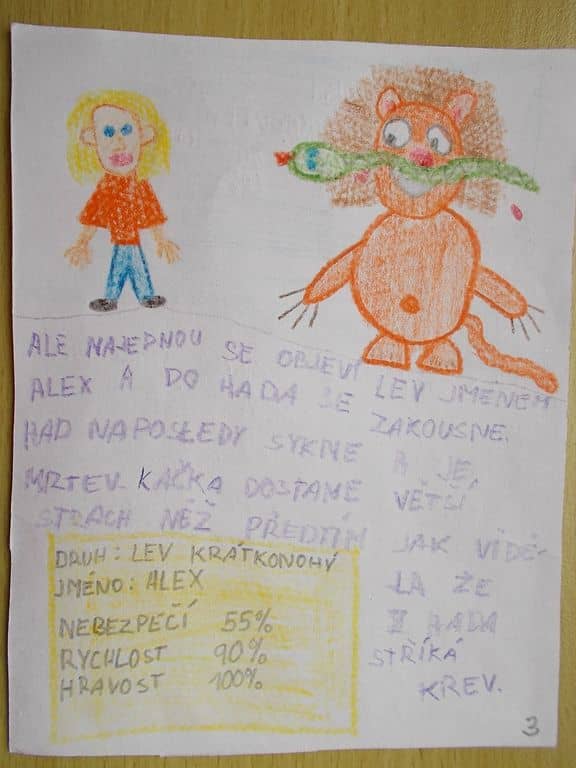 ALE NAJEDNOU SE OBJEVÍ LEV JMÉNEM
ALEX A DO HADA SE ZAKOUSNE.
HAD NAPOSLEDY SYKNE A JE
MRTEV. KAČKA DOSTANE VĚTŠÍ
STRACH NĚŽ PŘEDTÍM JAK VIDĚ-
LA ŽE
Z HADA
STŘÍKÁ
KREV.
DRUH: LEV KRÁTKONOHÝ
JMÉNO: ALEX
NEBEZPEČÍ 55%
RYCHLOST 90%
HRAVOST 100%
3